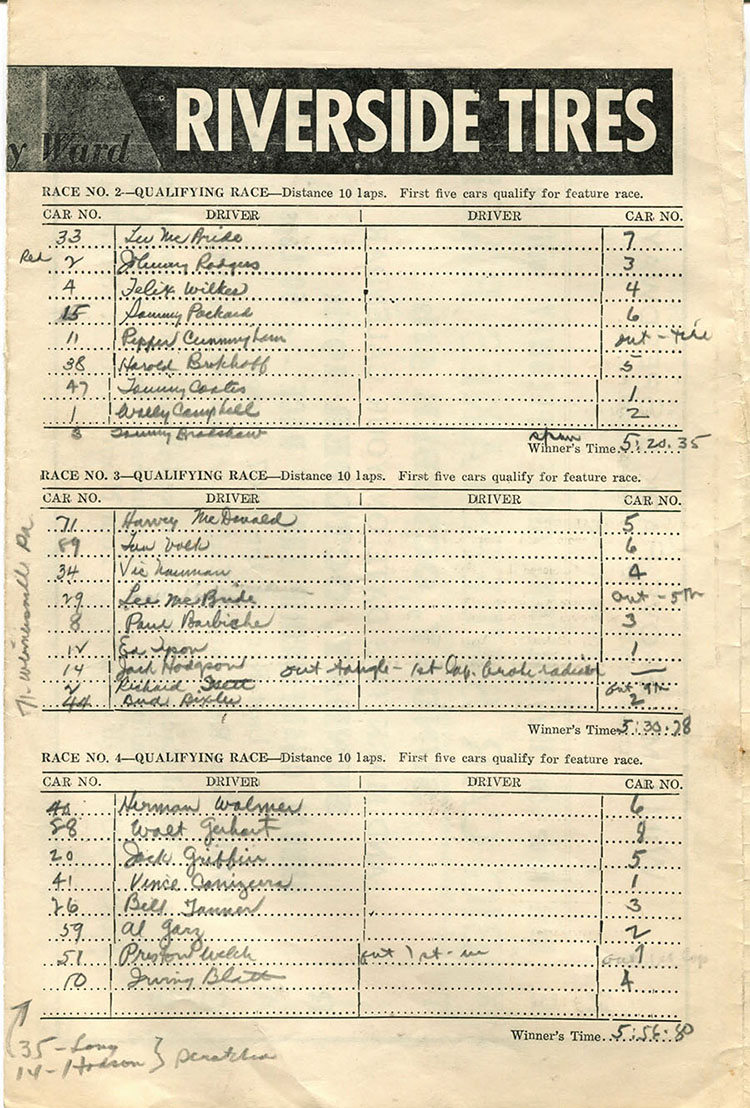 y Ward RIVERSIDE TIRES
RACE NO. 2—QUALIFYING RACE—Distance 10 laps. First five cars qualify for feature race.
CAR NO. DRIVER DRIVER CAR NO.
33 Lee McBride 7
Red 2 Johnny Rodgers 3
4 Felix Wilkes 4
15 Sammy Packard 6
11 Pepper Cunningham out - tire
38 Harold 5
47 Tommy Coates 1
1 Wally Campbell 2
3 Tommy Bradshaw spun
Winner's Time 5:20.35
RACE NO. 3—QUALIFYING RACE—Distance 10 laps. First five cars qualify for feature race.
CAR NO. DRIVER DRIVER CAR NO.
71 Harvey McDonald 5
89 Volk 6
34 Vic Nauman 4
29 Lee McBride out - 5th
8 Paul 3
12 Ed Tyson 1
14 Jack Hodgson out tangle - 1st lap. broke radiator —
2 Richard out 9th
44 Bud Bixler 2
71 - Wernersville Pa
Winner's Time 5:30.78
RACE NO. 4—QUALIFYING RACE—Distance 10 laps. First five cars qualify for feature race.
CAR NO. DRIVER DRIVER CAR NO.
40 Herman Walmer 6
88 Walt Gerhart 8
20 Jack Griffin 5
41 Vince Conizeira 1
26 Bill Tanner 3
59 Al Garz 2
51 Preston Welch out 1st 7 out 1st lap
10 Irving Blatt 4
Winner's Time 5:56.80
35 - Long
14 - Hodson } scratches